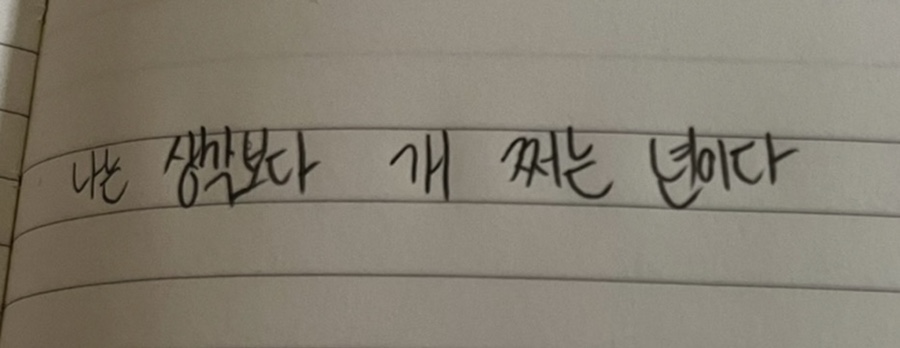 나는 생각보다 개 쩌는 년이다